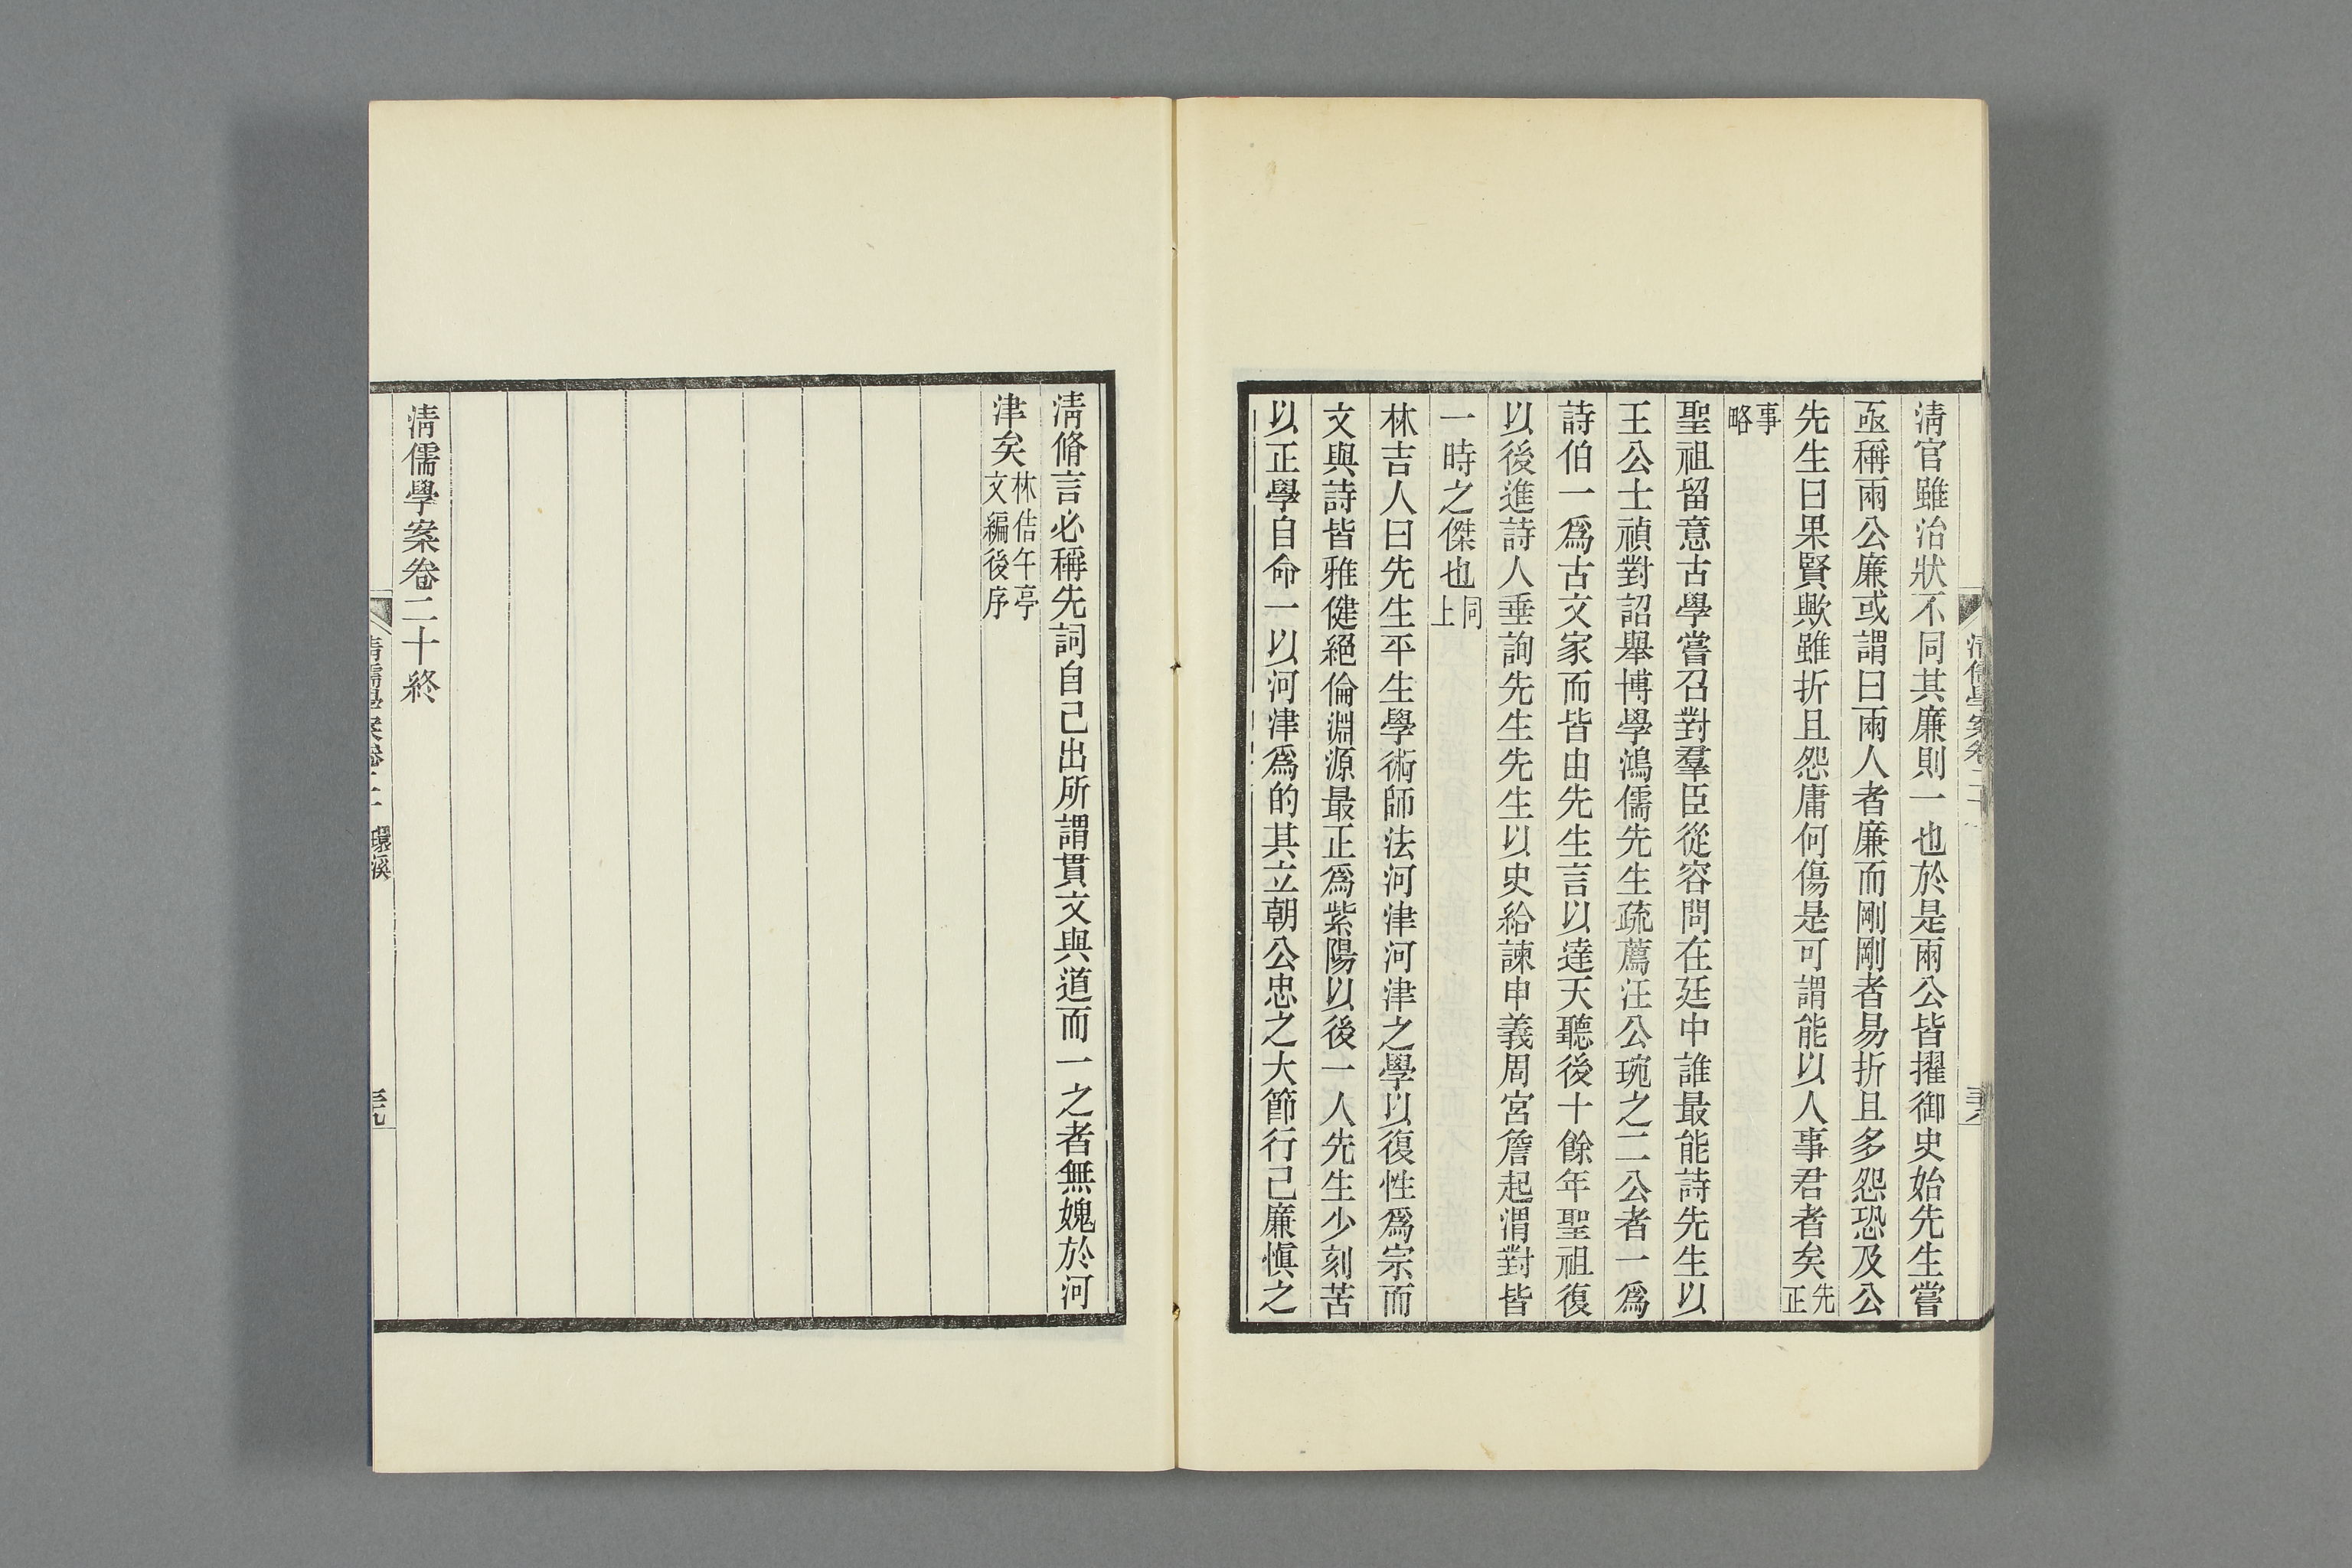 清官雖治狀不同其廉則一也於是兩公皆擢御史始先生嘗
亟稱兩公廉或謂曰兩人者廉而剛剛者易折且多怨恐及公
先生曰果賢歟雖折且怨庸何傷是可謂能以人事君者矣先正
事略
聖祖留意古學嘗召對羣臣從容問在廷中誰最能詩先生以
王公士禎對詔舉博學鴻儒先生疏薦汪公琬之二公者一爲
詩伯一爲古文家而皆由先生言以達天聽後十餘年聖祖復
以後進詩人垂詢先生先生以史給諫申義周宮詹起渭對皆
一時之傑也同上
林吉人曰先生平生學術師法河津河津之學以復性爲宗而
文與詩皆雅健絕倫淵源最正爲紫陽以後一人先生少刻苦
以正學自命一以河津爲的其立朝公忠之大節行己廉愼之
清儒學案卷二十
三八
清脩言必稱先詞自己出所謂貫文與道而一之者無媿於河
津矣林佶午亭文編後序
清儒學案卷二十終
清儒學案卷二十
環溪
三九